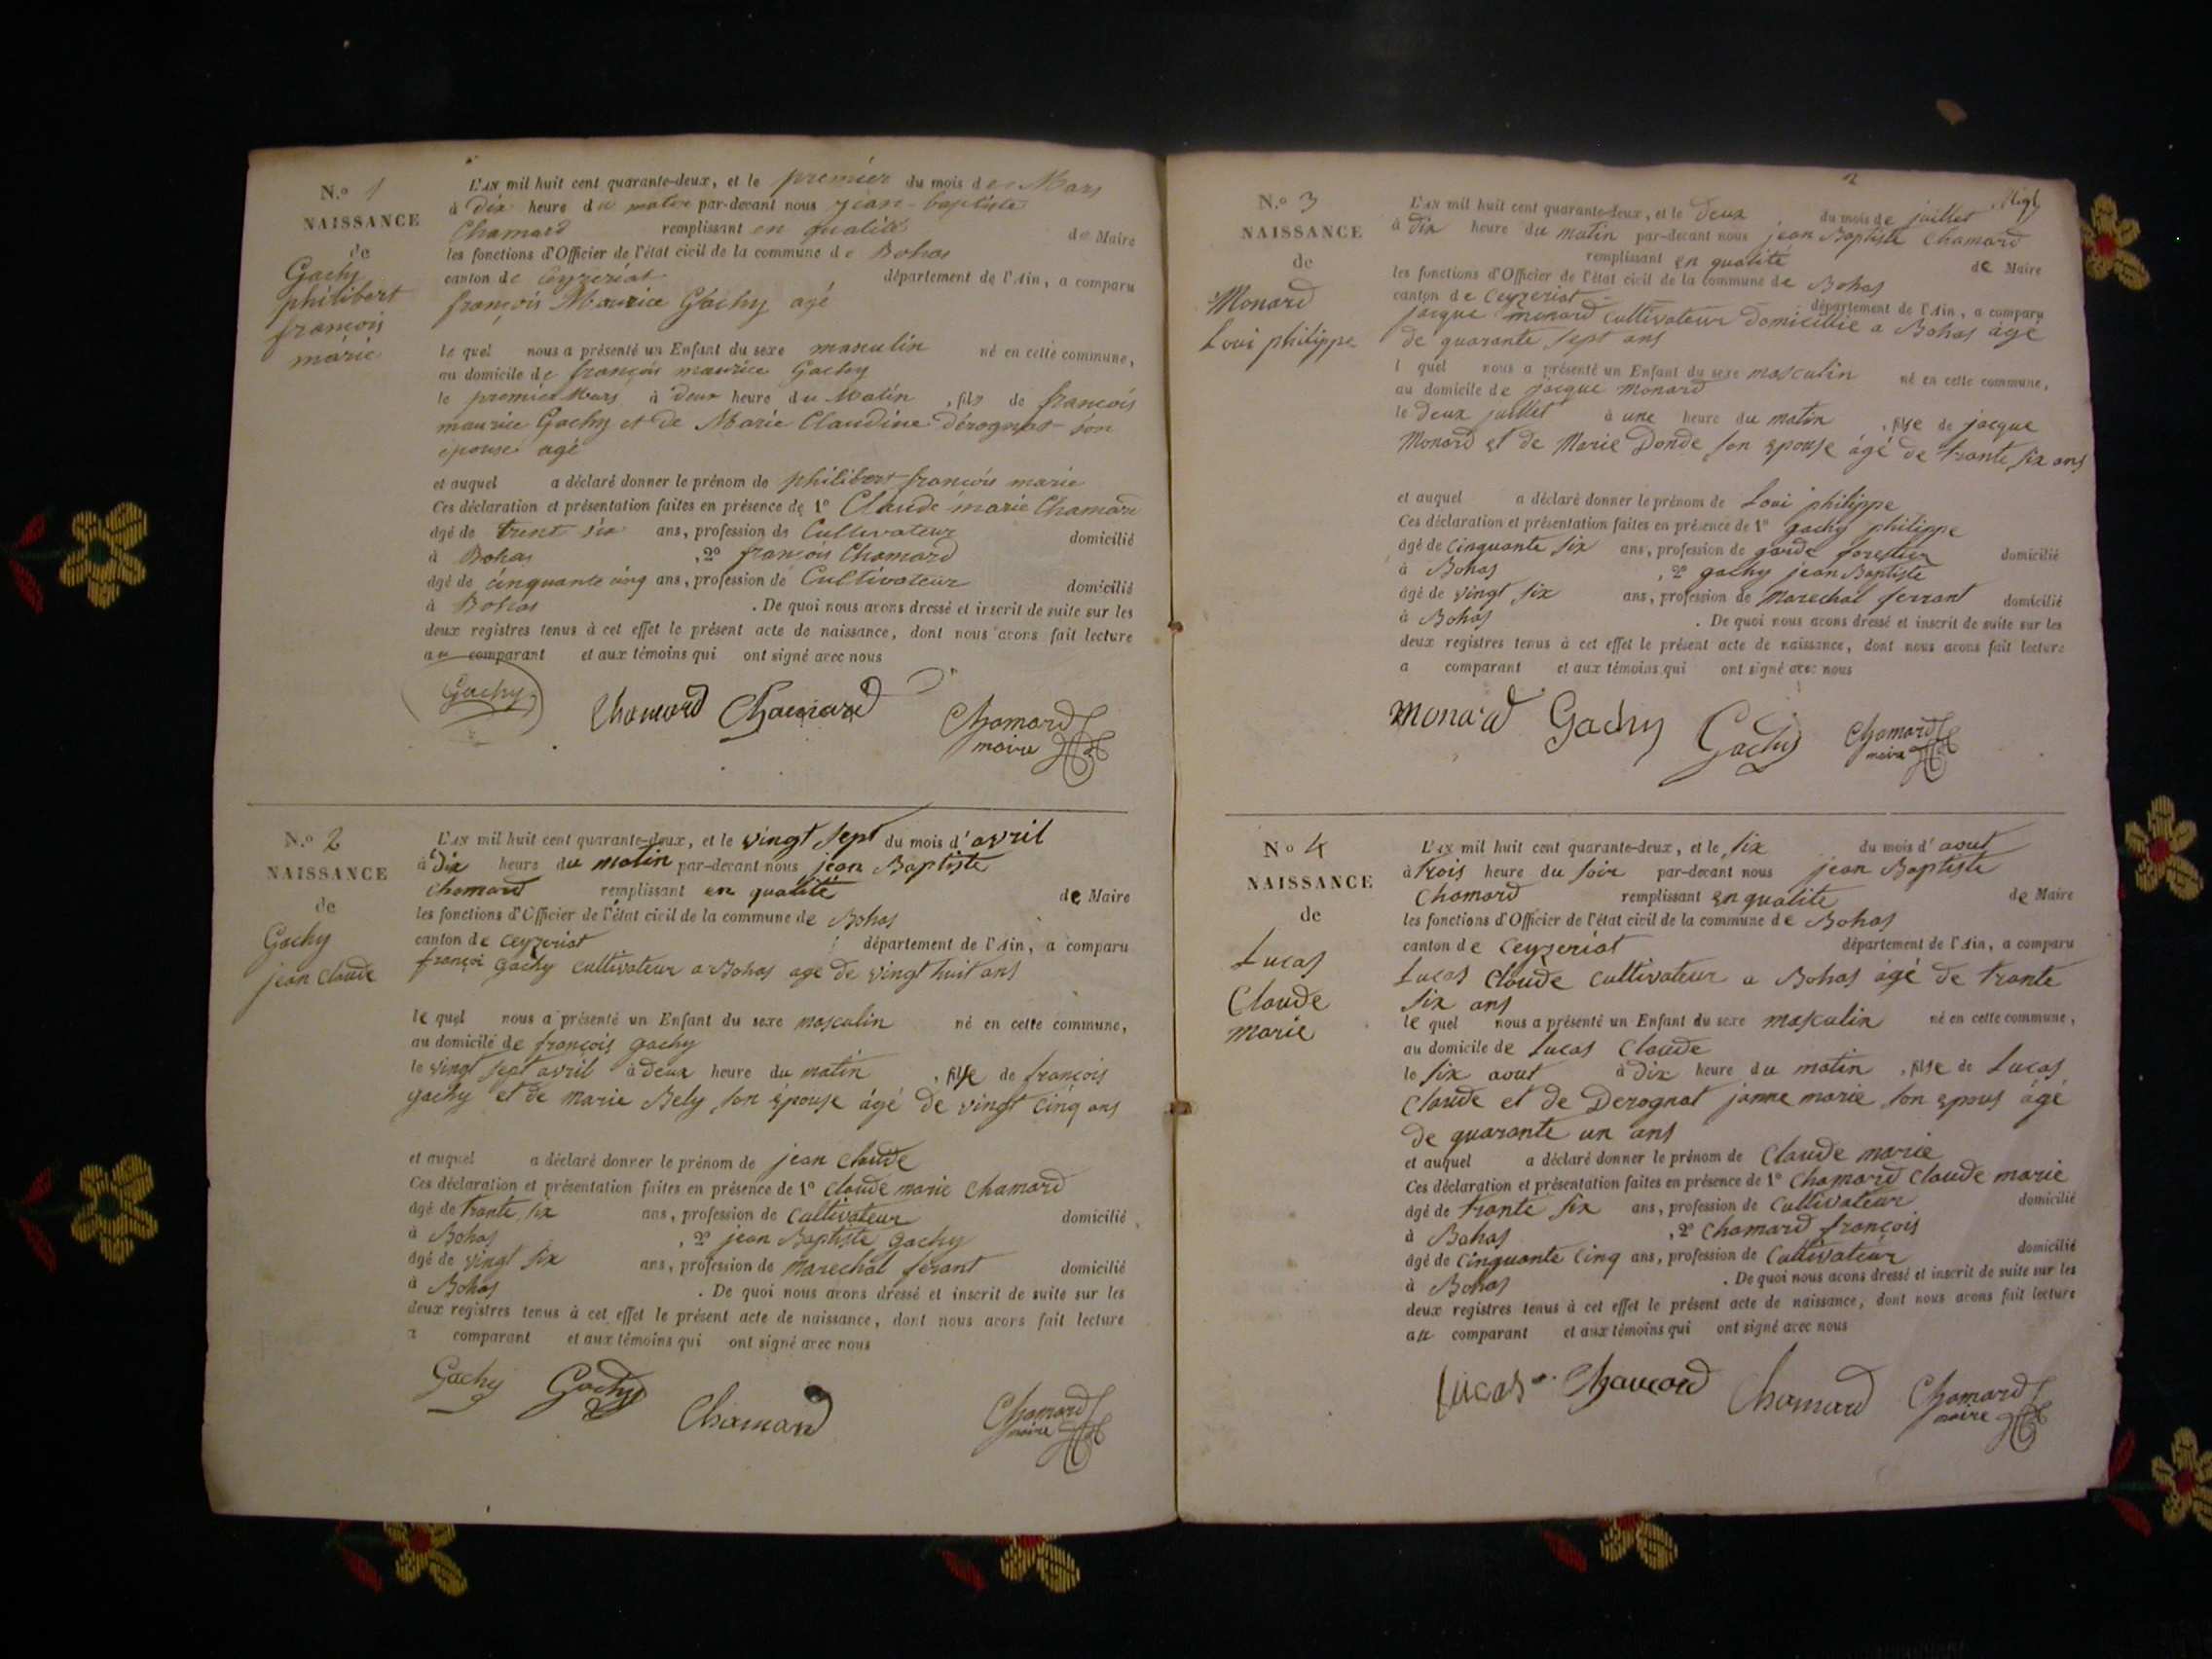 N.o 1
NAISSANCE
de
Gachy
philibert
françois
marie
L'AN mil huit cent quarante-deux, et le premier du mois de Mars
à Dix heure du matin par-devant nous jean-baptiste
Chamard remplissant en qualité de Maire
les fonctions d'Officier de l'état civil de la commune de Bohas
canton de Ceyzeriat département de l'Ain, a comparu
françois Maurice Gachy agé
le quel nous a présenté un Enfant du sexe masculin né en cette commune,
au domicile de françois maurice Gachy
le premier Mars à deux heure du Matin , fils de françois
maurice Gachy et de Marie Claudine dérognat son
épouse agé
et auquel a déclaré donner le prénom de philibert françois marie
Ces déclaration et présentation faites en présence de 1o Claude marie Chamard
âgé de trent six ans, profession de Cultivateur domicilié
à Bohas , 2o françois Chamard
âgé de cinquante cinq ans, profession de Cultivateur domicilié
à Bohas . De quoi nous avons dressé et inscrit de suite sur les
deux registres tenus à cet effet le présent acte de naissance, dont nous avons fait lecture
au comparant et aux témoins qui ont signé avec nous
Gachy Chamard Chamard Chamard
maire
N.o 2
NAISSANCE
de
Gachy
jean Claude
L'AN mil huit cent quarante-deux, et le vingt sept du mois d'avril
à Dix heure du matin par-devant nous jean Baptiste
Chamard remplissant en qualité de Maire
les fonctions d'Officier de l'état civil de la commune de Bohas
canton de Ceyzeriat département de l'Ain, a comparu
françoi Gachy cultivateur a Bohas age de vingt huit ans
le quel nous a présenté un Enfant du sexe masculin né en cette commune,
au domicile de françois gachy
le vingt sept avril à deux heure du matin , fils de françois
gachy et de marie Bely son épouse âgé de vingt cinq ans
et auquel a déclaré donner le prénom de jean claude
Ces déclaration et présentation faites en présence de 1o claude marie chamard
âgé de trante six ans, profession de cultivateur domicilié
à Bohas , 2o jean Baptiste gachy
âgé de vingt six ans, profession de marechal ferant domicilié
à Bohas . De quoi nous avons dressé et inscrit de suite sur les
deux registres tenus à cet effet le présent acte de naissance, dont nous avons fait lecture
a comparant et aux témoins qui ont signé avec nous
Gachy Gachy Chamard Chamard
maire
2
N.o 3
NAISSANCE
de
Monard
Loui philippe
L'AN mil huit cent quarante-deux, et le deux du mois de juillet
à dix heure du matin par-devant nous jean Baptiste Chamard
remplissant en qualite de Maire
les fonctions d'Officier de l'état civil de la commune de Bohas
canton de Ceyzeriat département de l'Ain, a comparu
jacque monard cultivateur domicillié a Bohas âgé
de quarante sept ans
l quel nous a présenté un Enfant du sexe masculin né en cette commune,
au domicile de jacque monard
le deux juillet à une heure du matin , fils de jacque
Monard et de Marie Donde son epouse âgé de trante six ans
et auquel a déclaré donner le prénom de Loui philippe
Ces déclaration et présentation faites en présence de 1o gachy philippe
âgé de cinquante six ans, profession de garde forestier domicilié
à Bohas , 2o gachy jean Baptiste
âgé de vingt six ans, profession de marechal ferrant domicilié
à Bohas . De quoi nous avons dressé et inscrit de suite sur les
deux registres tenus à cet effet le présent acte de naissance, dont nous avons fait lecture
a comparant et aux témoins qui ont signé avec nous
Monard Gachy Gachy Chamard
maire
No 4
NAISSANCE
de
Lucas
Claude
marie
L'AN mil huit cent quarante-deux, et le six du mois d'aout
à trois heure du soir par-devant nous jean Baptiste
Chamard remplissant en qualite de Maire
les fonctions d'Officier de l'état civil de la commune de Bohas
canton de Ceyzeriat département de l'Ain, a comparu
Lucas Claude cultivateur a Bohas âgé de trante
six ans
le quel nous a présenté un Enfant du sexe masculin né en cette commune,
au domicile de Lucas Claude
le six aout à dix heure du matin , fils de Lucas
Claude et de Derognat janne marie son epous âgé
de quarante un ans
et auquel a déclaré donner le prénom de Claude marie
Ces déclaration et présentation faites en présence de 1o Chamard Claude marie
âgé de trante six ans, profession de cultivateur domicilié
à Bohas , 2o Chamard françois
âgé de cinquante cinq ans, profession de Cultivateur domicilié
à Bohas . De quoi nous avons dressé et inscrit de suite sur les
deux registres tenus à cet effet le présent acte de naissance, dont nous avons fait lecture
au comparant et aux témoins qui ont signé avec nous
Lucas Chamard Chamard Chamard
maire